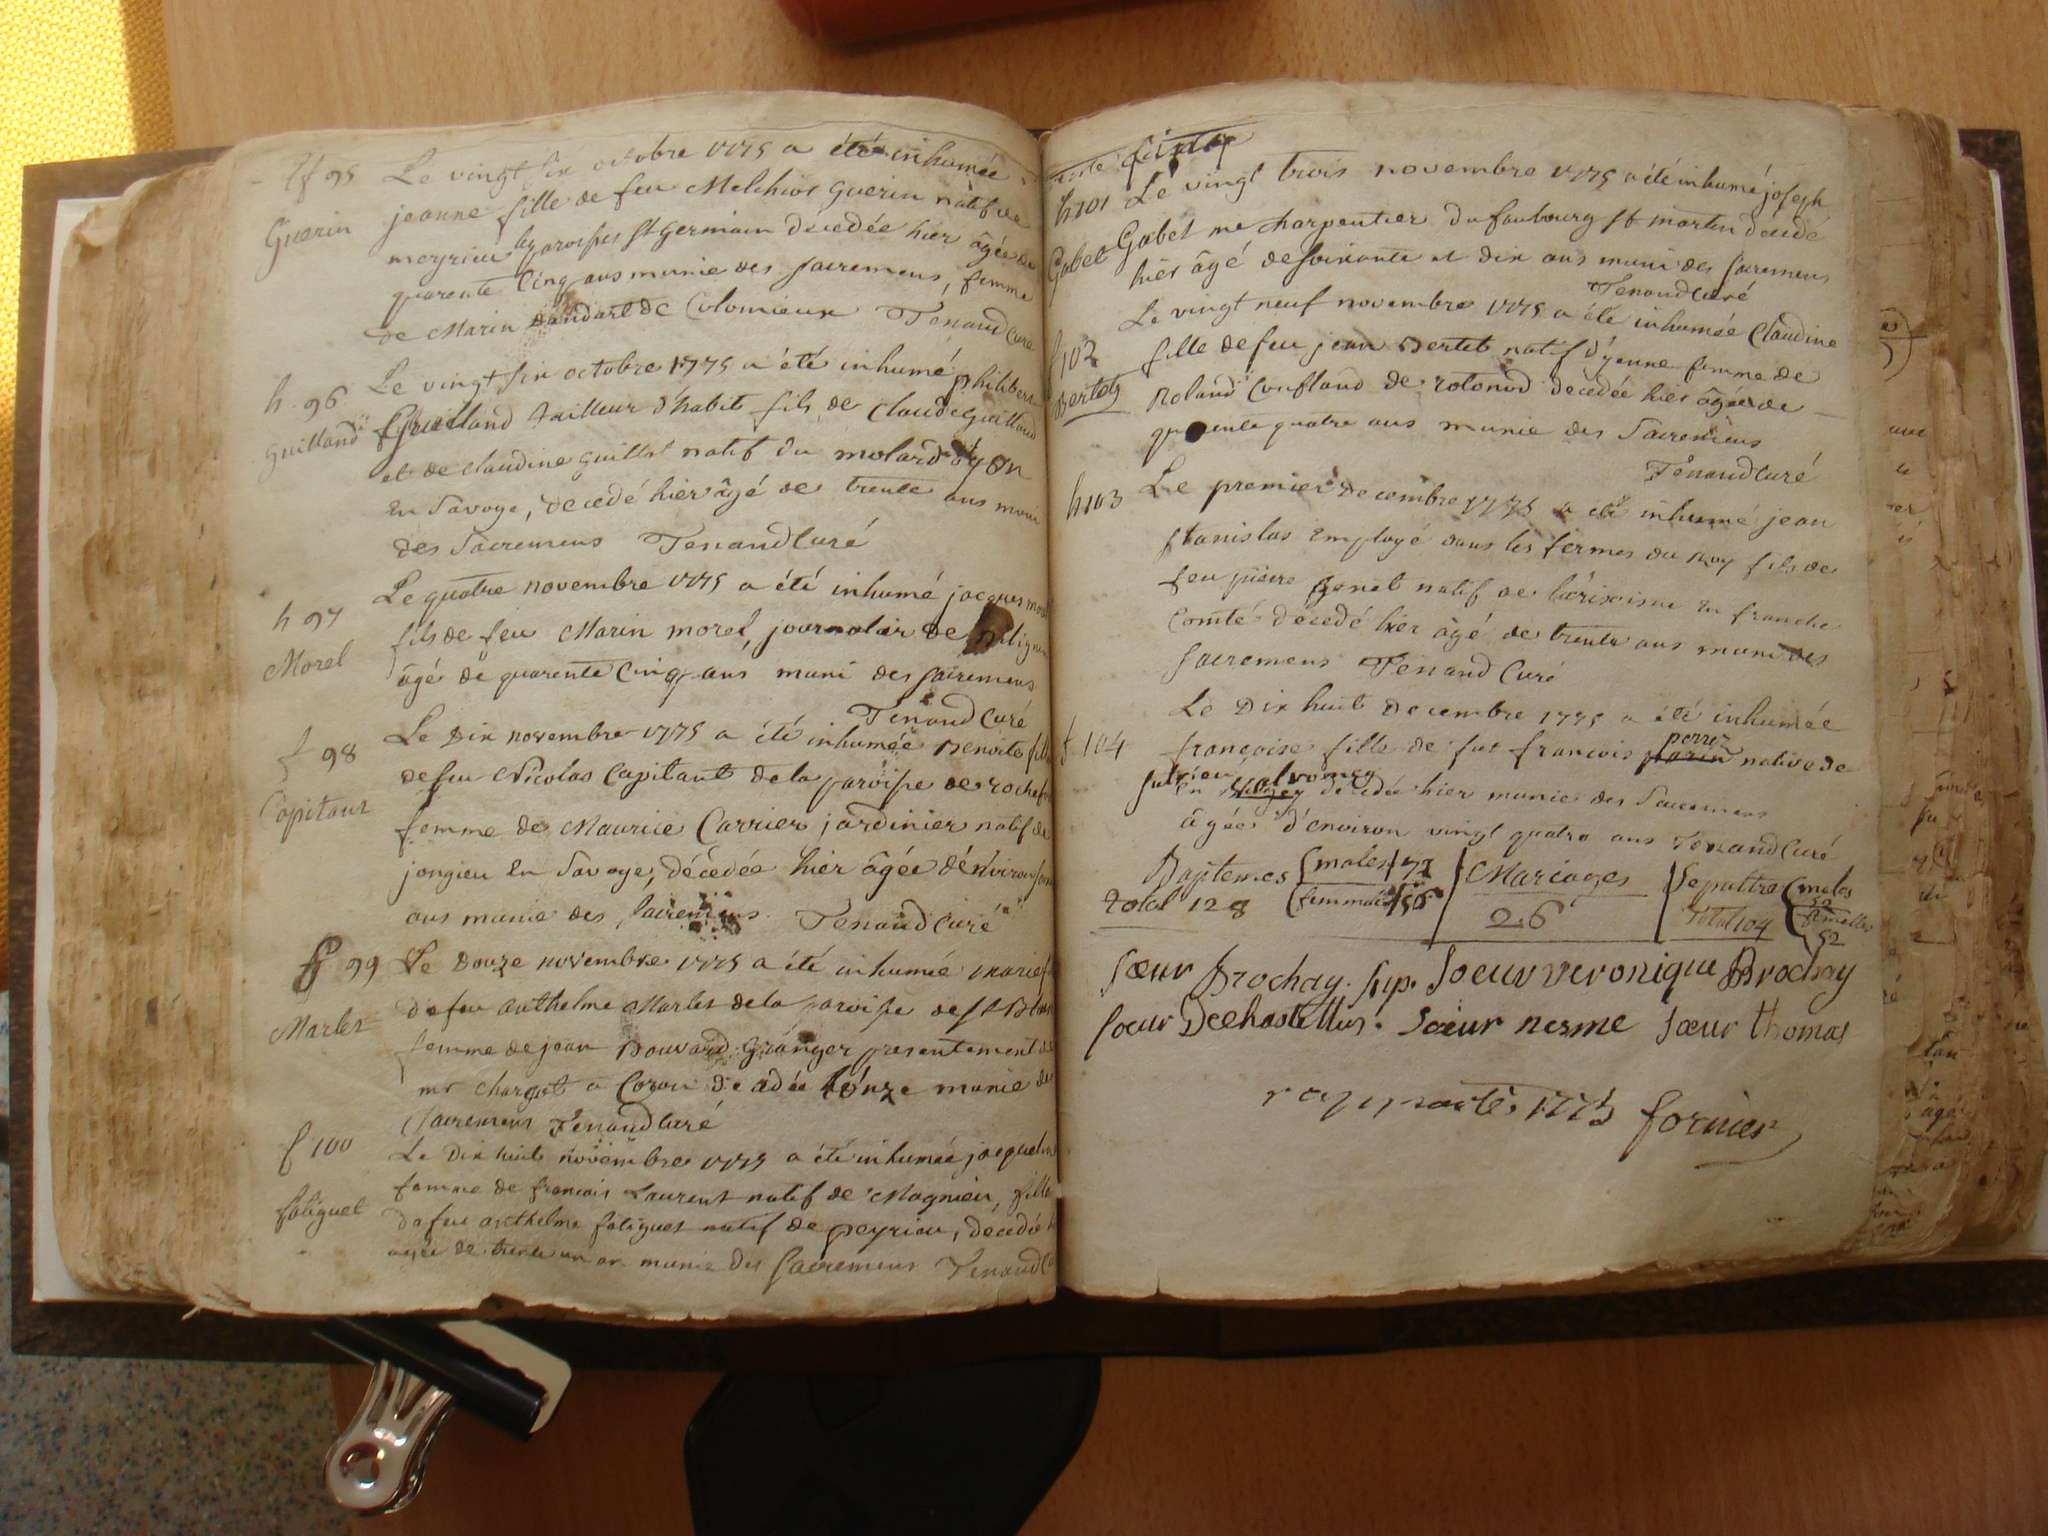 f 95 Le vingt six octobre 1775 a été inhumée
Guerin jeanne fille de feu Melchior Guerin natif de
meyrieu paroisse st germain décédée hier âgée de
quarente cinq ans munie des sacremens, femme
de Marin Dandart de Colomieux Tenand Curé
h. 96 Le vingt six octobre 1775 a été inhumé philibert
Guilland Guilland tailleur d'habits fils de claude guilland
et de claudine guillot natif du molard
en Savoye, décedé hier âgé de trente ans muni
des Sacremens Tenand Curé
h 97 Le quatre novembre 1775 a été inhumé jacques morel
Morel fils de feu Marin morel, journalier de
âgé de quarente Cinq ans muni des sacremens
Tenand Curé
f 98 Le Dix novembre 1775 a été inhumée Benoite fille
Capitant de feu Nicolas Capitant de la paroisse de rochef
femme de Maurice Carrier jardinier natif de
jongieu en Savoye, décédée hier âgée d'environ
ans munie des sacremens Tenand Curé
f 99 Le Douze novembre 1775 a été inhumée marie f
Marlet de feu anthelme Marlet de la paroisse de st
femme de jean Bouvard granger presentement de
mr charget a Coron munie des
Sacremens Tenand Curé
f 100 Le Dix huit novembre 1775 a été inhumée jacqueline
femme de francois Laurent natif de Magnieu, fille
fatiguet de feu anthelme fatiguet natif de peyrieu, décédé
agée de trente un an munie des Sacremens Tenand Cu
h 101 Le vingt trois novembre 1775 a été inhumé joseph
Gabet Gabet me charpentier du faubourg st martin decedé
hier âgé de soixante et dix ans muni des sacremens
Tenand Curé
f 102 Le vingt neuf novembre 1775 a été inhumée Claudine
Bertet fille de feu jean Bertet natif d'yenne femme de
Roland Confland de rotonod decedée hier âgée de
quarente quatre ans munie des Sacremens
Tenand Curé
h 103 Le premier decembre 1775 a été inhumé jean
stanislas employé dans les fermes du Roy fils de
feu pierre genet natif de en franche
Comté décedé hier âgé de trente ans muni des
sacremens Tenand Curé
Le Dix huit decembre 1775 a été inhumée
f 104 francoise fille de feu francois perret native de
sutrieu en valromey decedée hier munie des Sacremens
âgée d'environ vingt quatre ans Tenand Curé
Baptemes males 72 Mariages Sepultre males 52
total 128 femmes 56 26 total 104 femelles 52
sœur Brochay. sup. soeur veronique Brochay
sœur Dechastellus. sœur nesme sœur thomas
1775 fornier